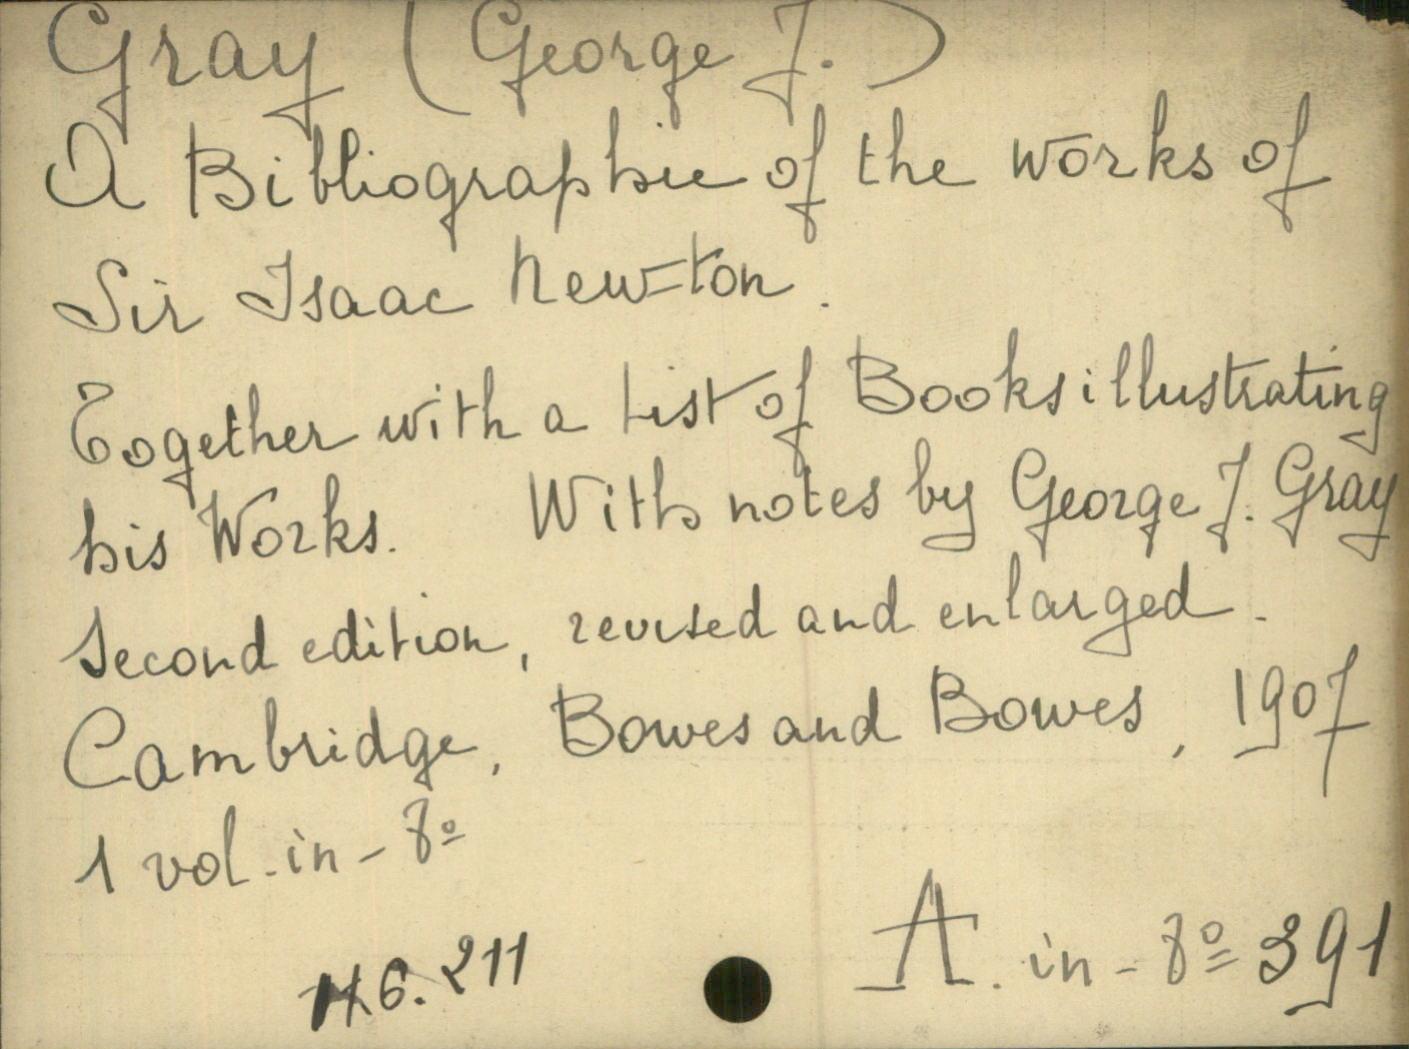 Gray (George J.)
A Bibliographie of the works of
Sir Isaac Newton.
Together with a List of Books illustrating
his Works. With notes by George J. Gray
Second edition, revised and enlarged.
Cambridge, Bowes and Bowes, 1907
1 vol. in-8º
A. in-8º 391
211